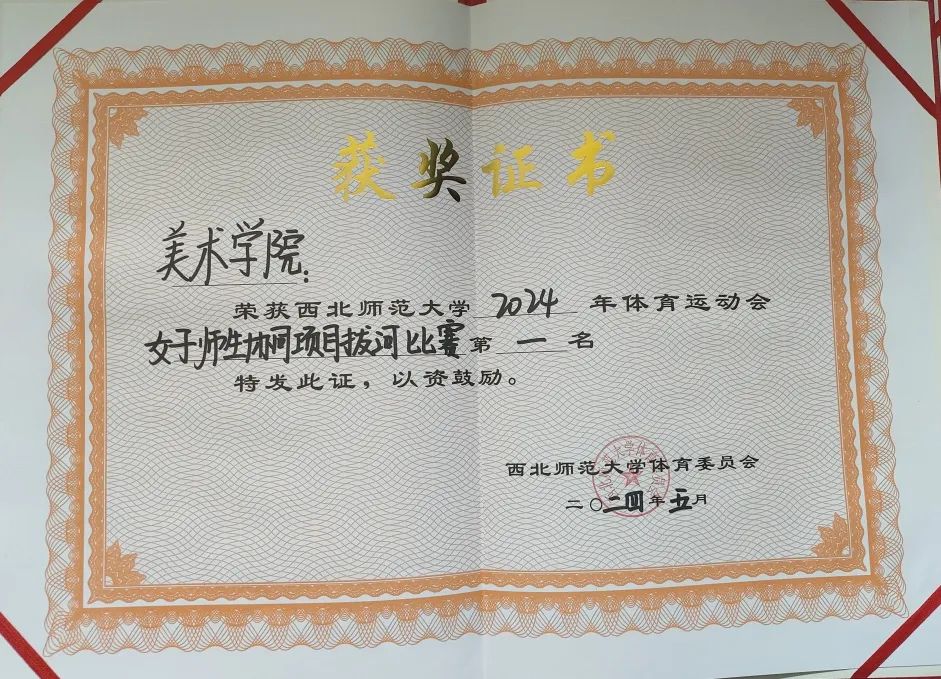 获奖证书
美术学院：
荣获西北师范大学 2024 年体育运动会
女子师生协同项目拔河比赛第 一 名
特发此证，以资鼓励。
西北师范大学体育委员会
二〇二四年五月